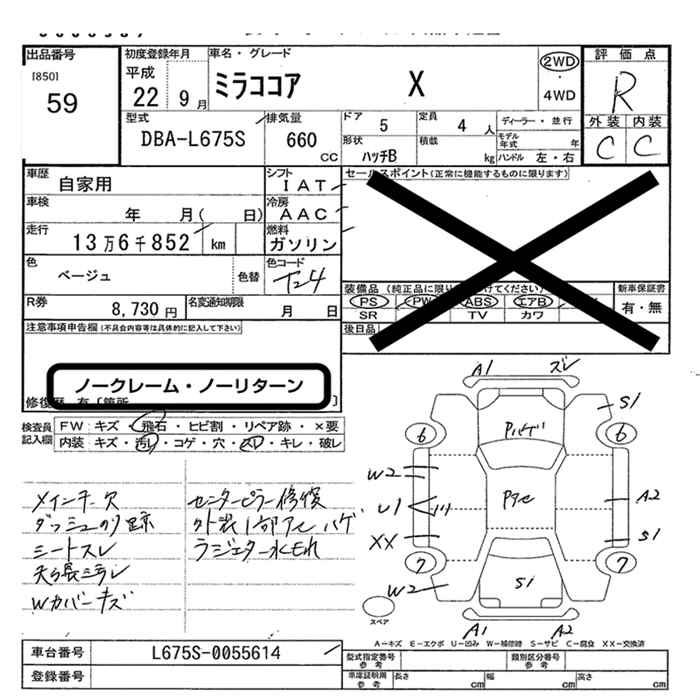 出品番号
[850]
59
初度登録年月
平成
22 9月
車名・グレード
ミラココア X
2WD
・
4WD
評価点
R
外装 内装
C C
型式
DBA-L675S
排気量
660
CC
ドア 5
定員 4 人
ディーラー・並行
形状
ハッチB
積載
kg
モデル年式 年
ハンドル 左・右
車歴
自家用
シフト
IAT
車検
年 月( 日)
冷房
AAC
走行
13万6千852 km
燃料
ガソリン
色
ベージュ
色替
色コード
T24
R券
8,730円
名変通知期限
月 日
セールスポイント(正常に機能するものに限ります)
装備品
PS PW ABS エアB
SR TV カワ
後日品
新車保証書
有・無
注意事項申告欄(不具合内容等は具体的に記入して下さい)
ノークレーム・ノーリターン
検査員記入欄
FW キズ・飛石・ヒビ割・リペア跡・×要
内装 キズ・汚レ・コゲ・穴・スレ・キレ・破レ
メインキー欠
センターピラー修復
ダッシュのり跡
シートスレ
ラジエター水もれ
Wカバーキズ
A1 スレ
S1
6 6
W2
U1
A2
XX
S1
7 7
W2
S1
A1 A2
スペア
A-キズ E-エクボ U-凹み W-補修跡 S-サビ C-腐食 XX-交換済
車台番号
L675S-0055614
登録番号
型式指定番号
参考
類別区分番号
参考
車庫証明用
参考
長さ cm
幅 cm
高さ cm